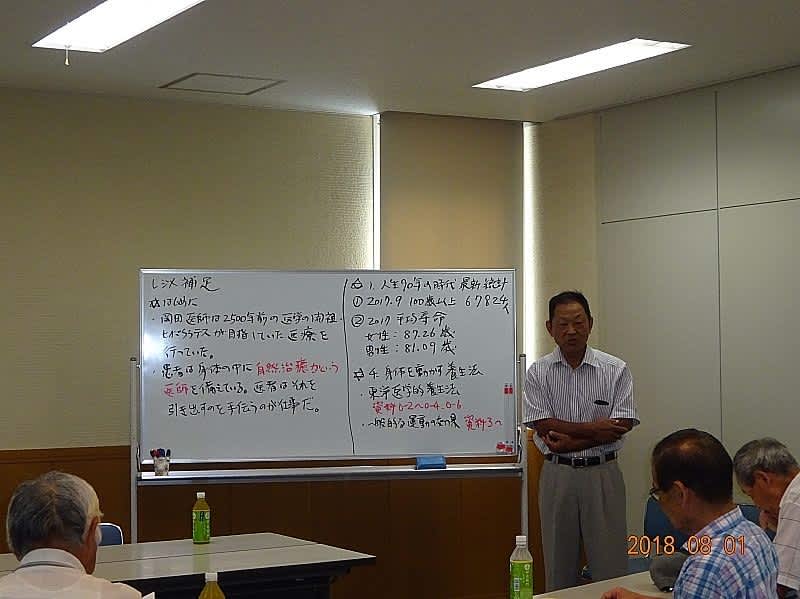 レジメ補足
☆はじめに
・岡田医師は2500年前の医学の開祖・
ヒポクラテスが目指していた医療を
行っていた。
・患者は身体の中に自然治癒力という
医師を備えている。医者はそれを
引き出すのを手伝うのが仕事だ。
☆1.人生90年の時代 最新統計
①2017.9 100歳以上 67824人
②2017 平均寿命
女性：87.26歳
男性：81.09歳
☆4.身体を動かす養生法
・東洋医学的養生法
資料0-2〜0-4、0-6
・一般的な運動の効果 資料3へ
2018 08 01